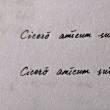 Cicero amicum su
Cicero amicum su